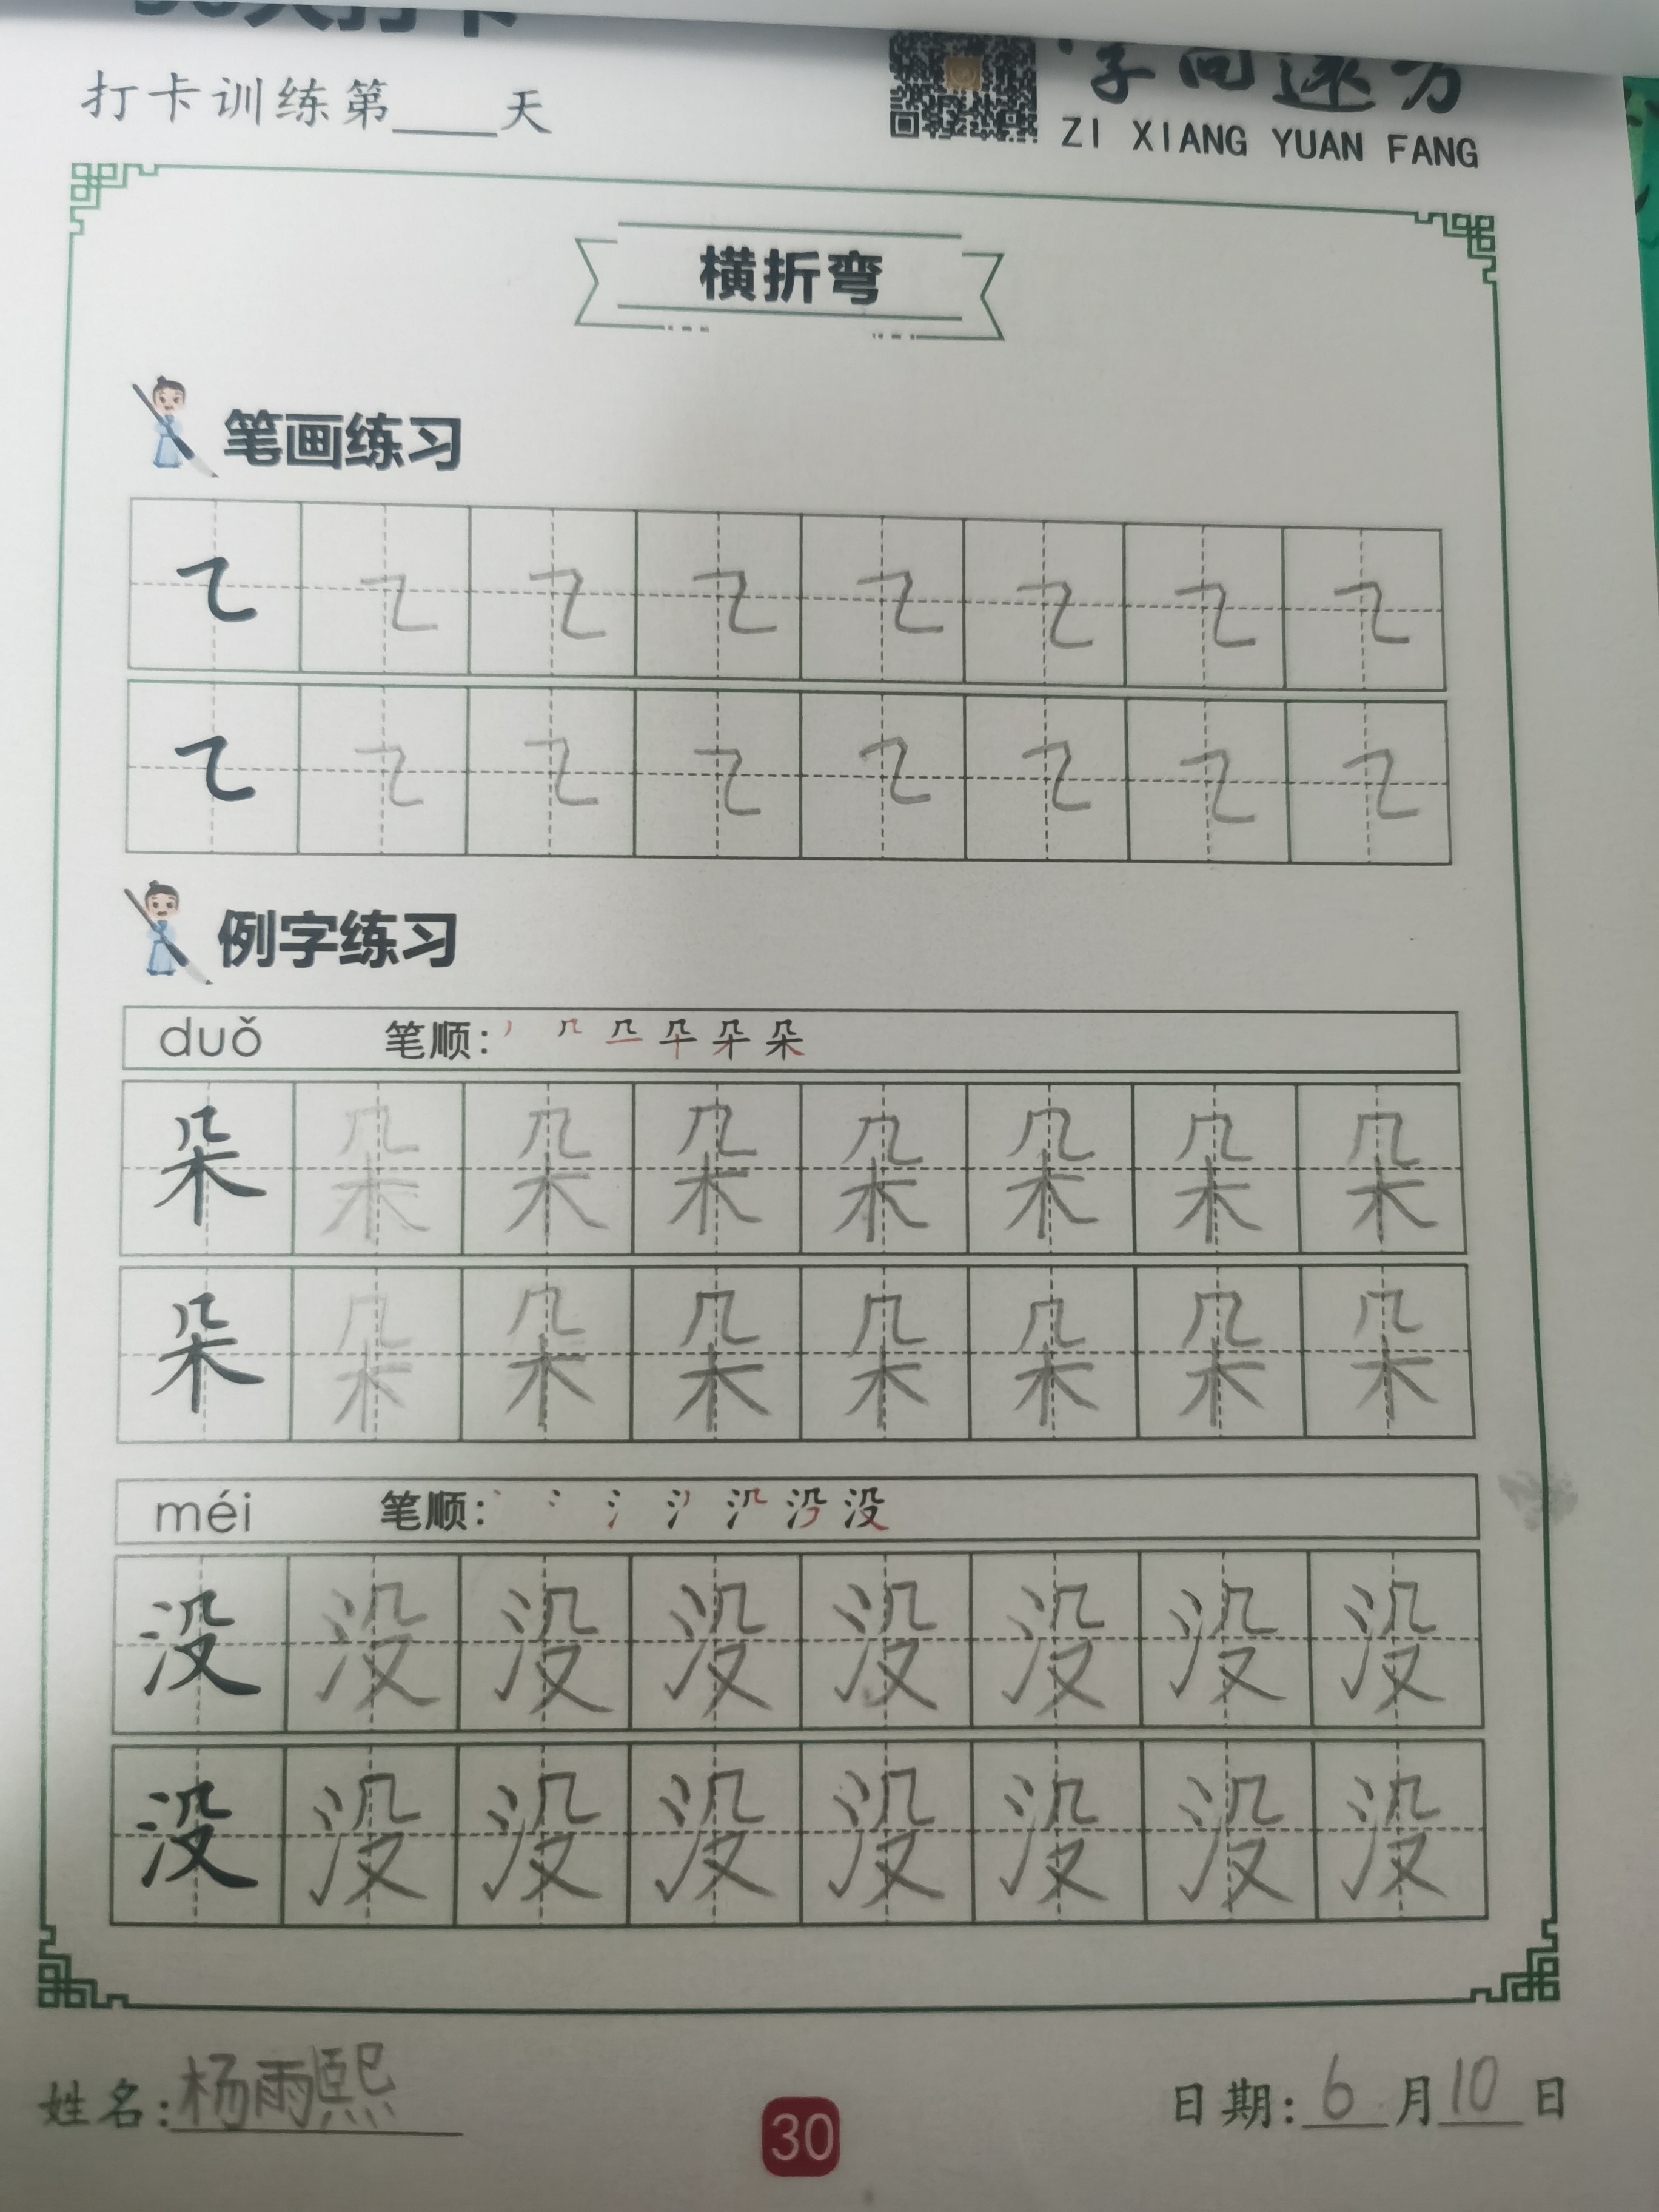 打卡训练第____天
字向远方
ZI XIANG YUAN FANG
横折弯
笔画练习
例字练习
duǒ 笔顺:
朵 朵 朵 朵 朵 朵 朵 朵
朵 朵 朵 朵 朵 朵 朵 朵
méi 笔顺: 没
没 没 没 没 没 没 没 没
没 没 没 没 没 没 没 没
姓名:杨雨熙
30
日期:6月10日